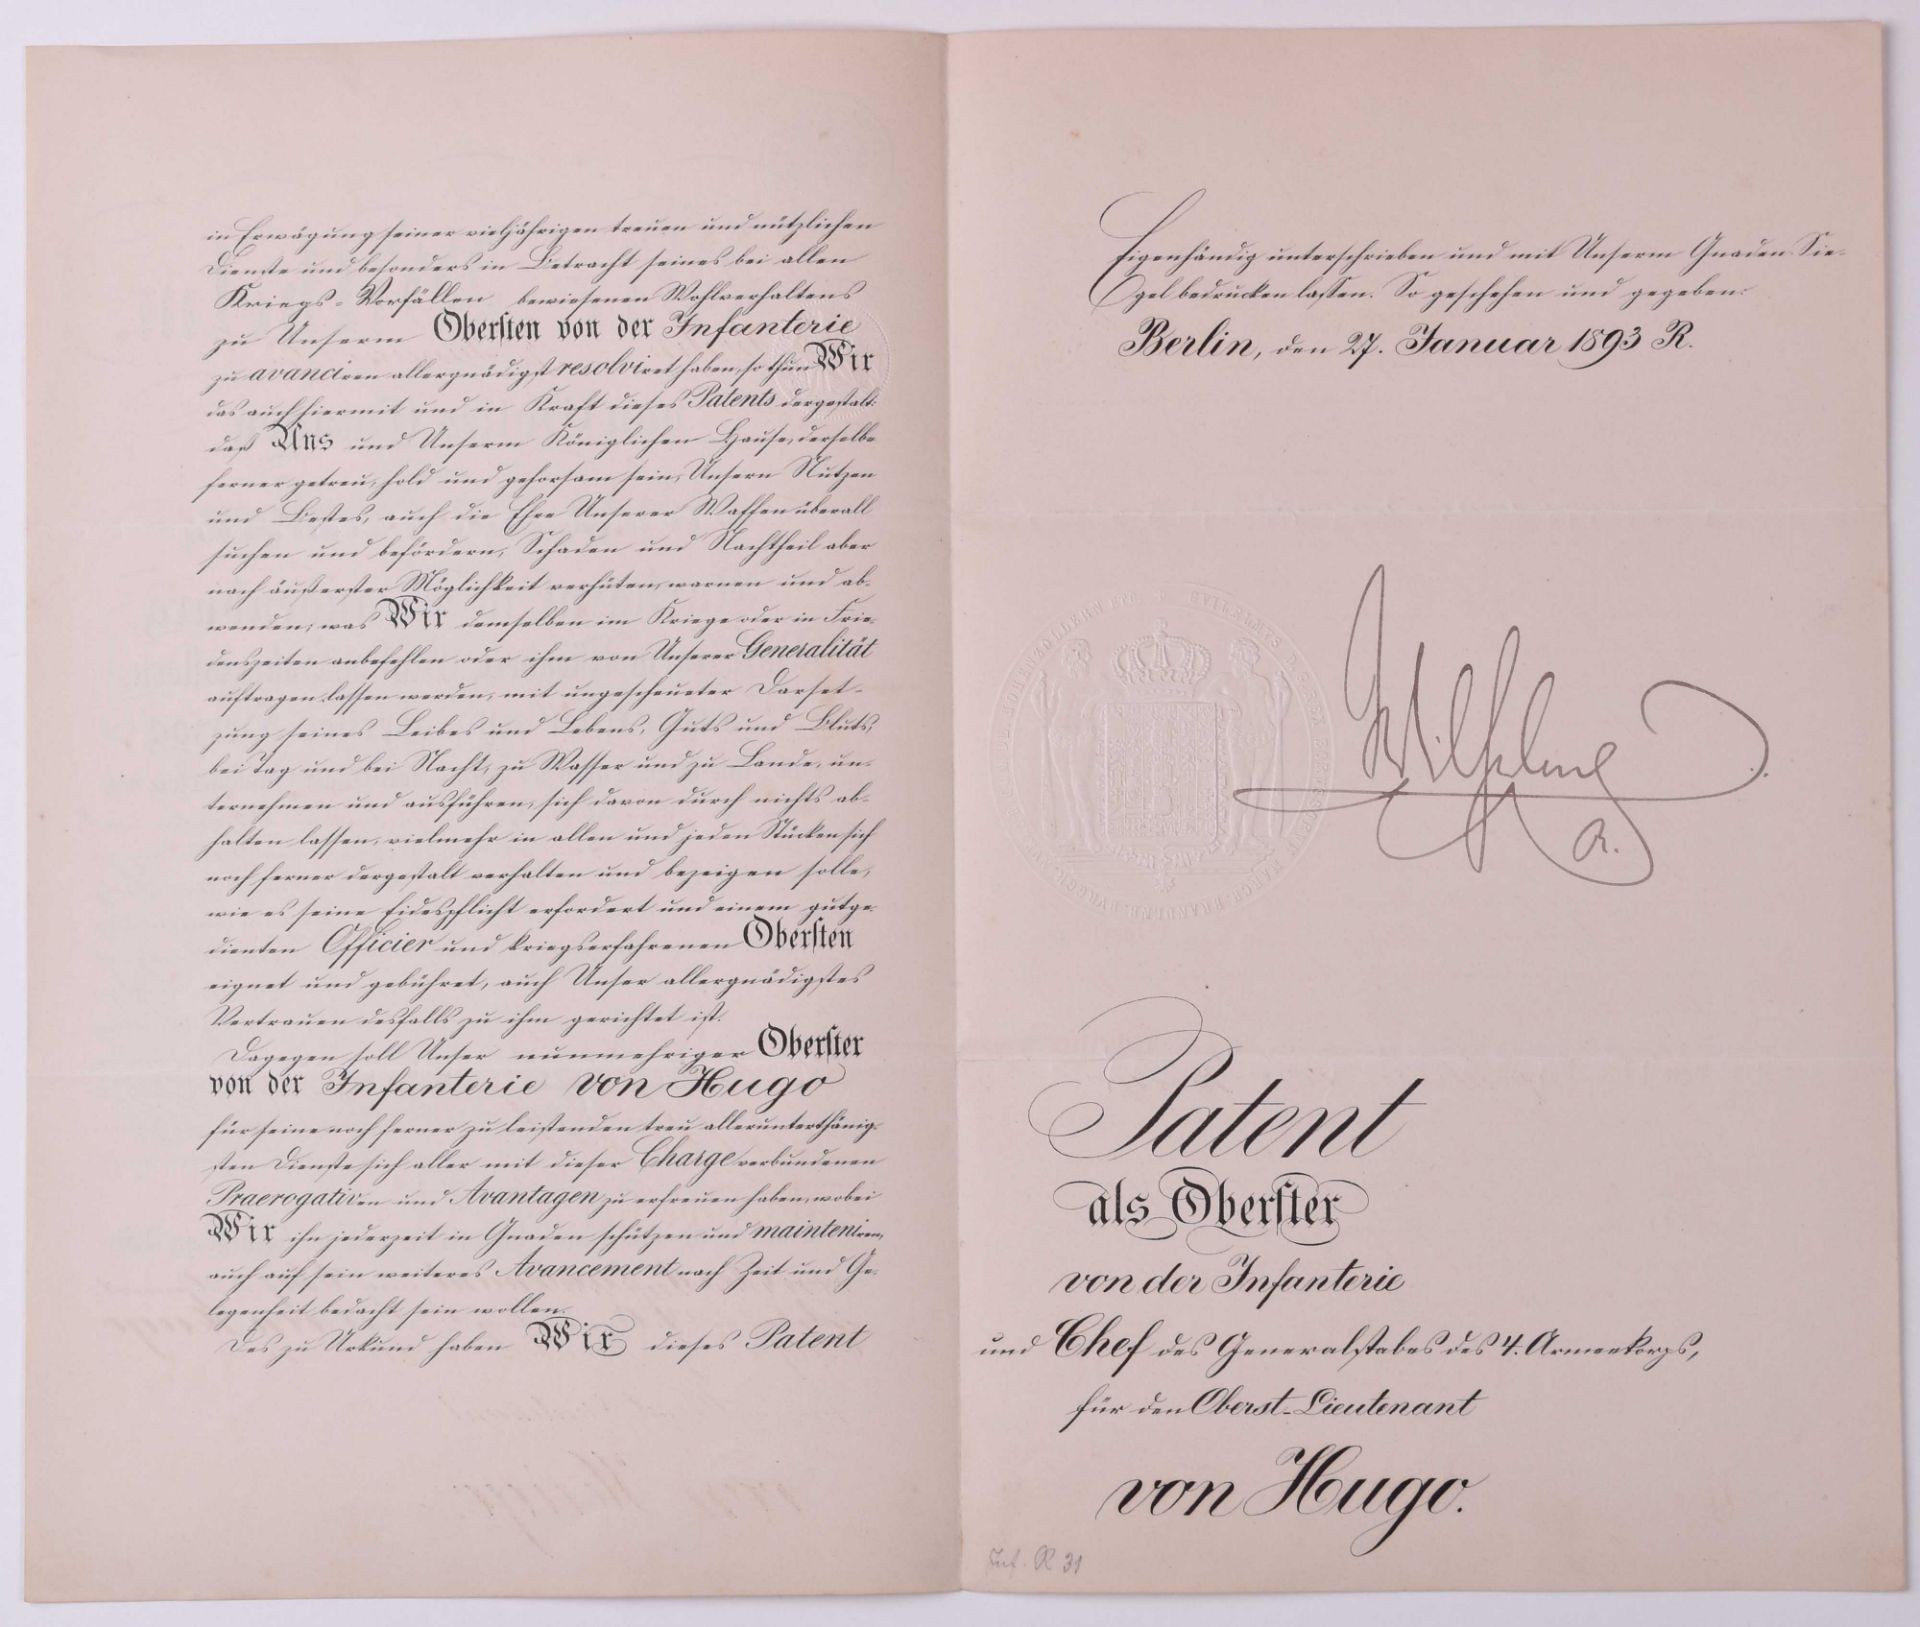 in Erwägung seiner vieljährigen treuen und nützlichen
Dienste und besonders in Betracht seines bei allen
Kriegs-Vorfällen bewiesenen Wohlverhaltens
zu Unserm Obersten von der Infanterie
zu avanciren allergnädigst resolviret haben, so thun Wir
das auch hiermit und in Kraft dieses Patents dergestalt:
daß Uns und Unserm Königlichen Hause, derselbe
ferner getreu, hold und gehorsam sein, Unsern Nutzen
und Bestes, auch die Ehre Unserer Waffen überall
suchen und befördern, Schaden und Nachtheil aber
nach äußerster Möglichkeit verhüten, warnen und ab-
wenden; was Wir demselben im Kriege oder in Frie-
denszeiten anbefehlen oder ihm von Unserer Generalität
auftragen lassen werden, mit ungescheueter Darset-
zung seines Leibes und Lebens, Guts und Bluts,
bei Tag und bei Nacht, zu Wasser und zu Lande, un-
ternehmen und ausführen, sich davon durch nichts ab-
halten lassen, vielmehr in allen und jeden Stücken sich
noch ferner dergestalt verhalten und bezeigen solle,
wie es seine Eidespflicht erfordert und einem gutge-
dienten Officier und kriegserfahrenen Obersten
eignet und gebühret, auch Unser allergnädigstes
Vertrauen desfalls zu ihm gerichtet ist.
Dagegen soll Unser nunmehriger Oberster
von der Infanterie von Hugo
für seine noch ferner zu leistenden treu allerunterthänig-
sten Dienste sich aller mit dieser Charge verbundenen
Praerogativen und Avantagen zu erfreuen haben, wobei
Wir ihn jederzeit in Gnaden schützen und mainteniren,
auch auf sein weiteres Avancement nach Zeit und Ge-
legenheit bedacht sein wollen.
Des zu Urkund haben Wir dieses Patent
Eigenhändig unterschrieben und mit Unserm Gnaden-Sie-
gel bedrucken lassen. So geschehen und gegeben:
Berlin, den 27. Januar 1893 R.
Wilhelm
R.
Patent
als Oberster
von der Infanterie
und Chef des Generalstabes des 4. Armeekorps,
für den Oberst-Lieutenant
von Hugo.
Inf. R 31